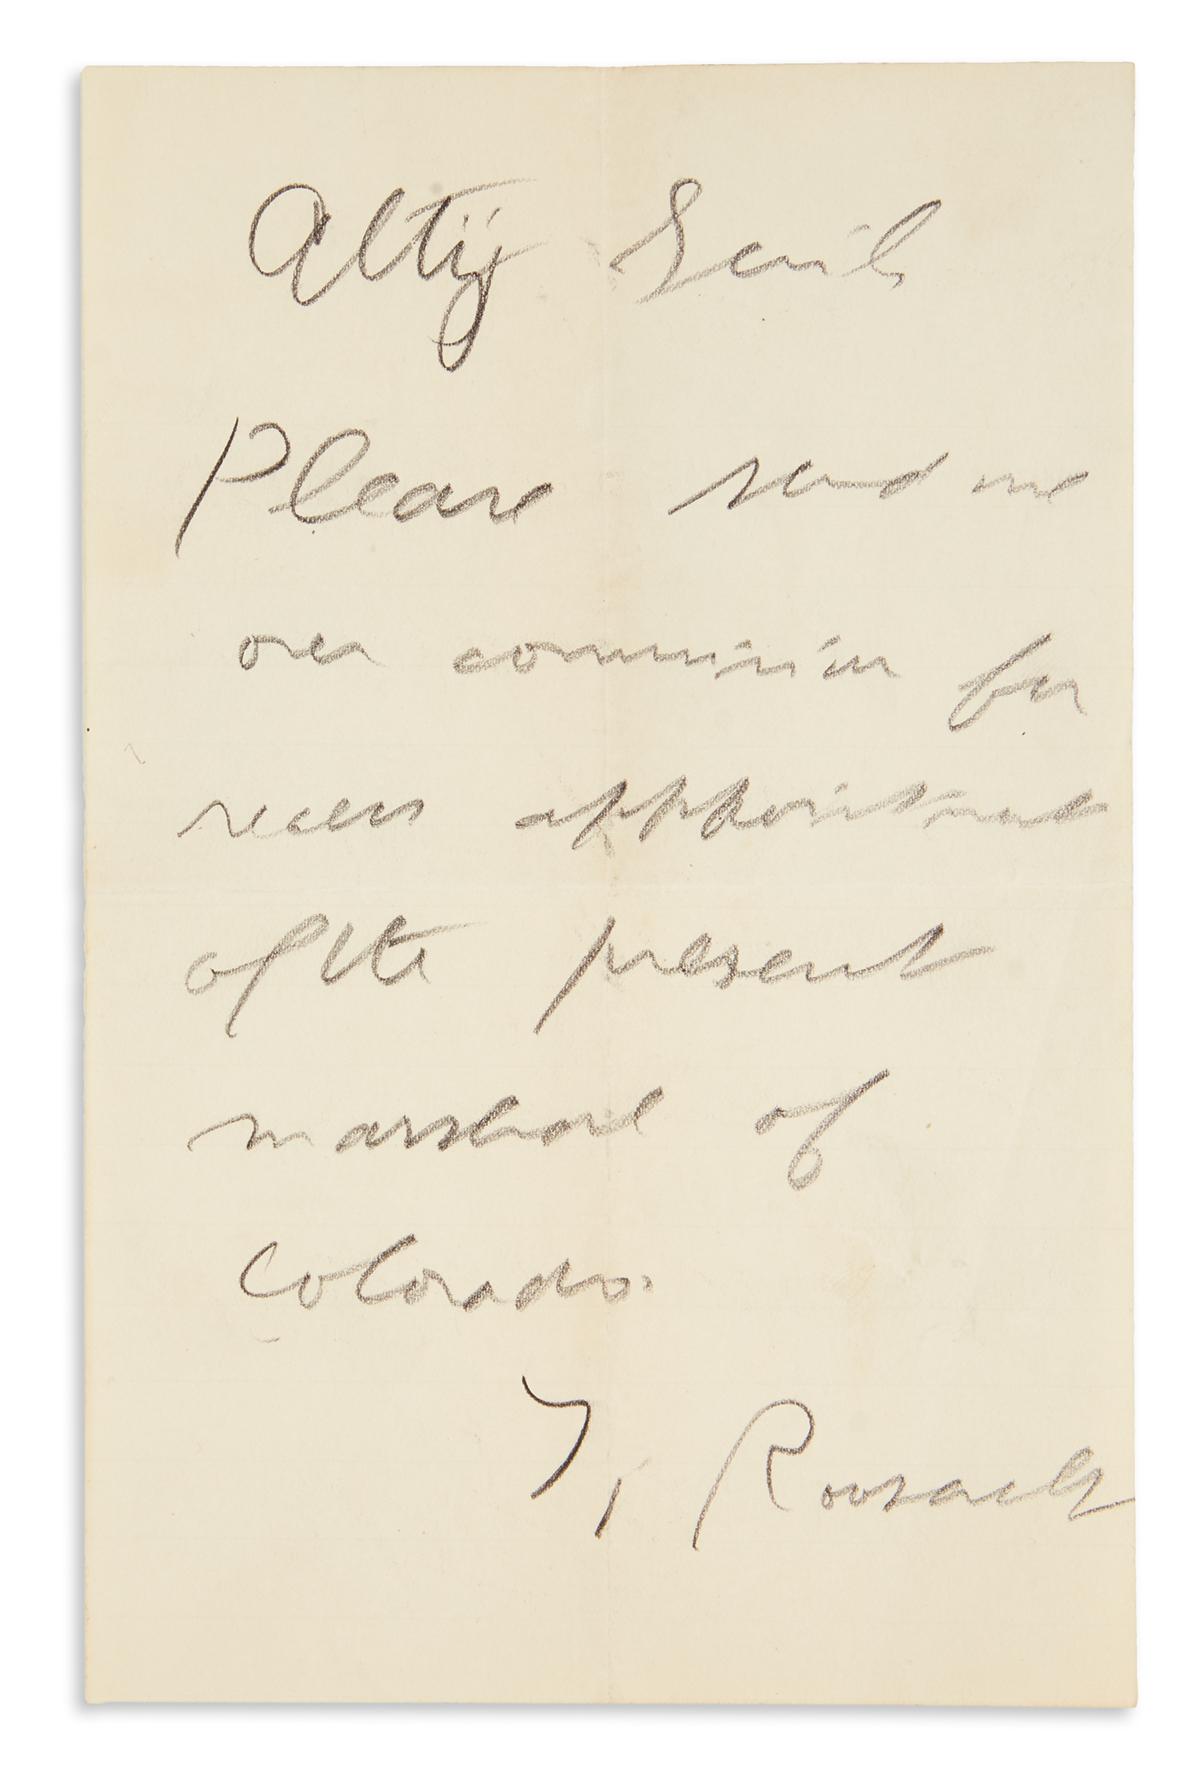 Atty Genl
Please send me
over commission for
recess appointment
of the present
marshal of
Colorado.
T. Roosevelt